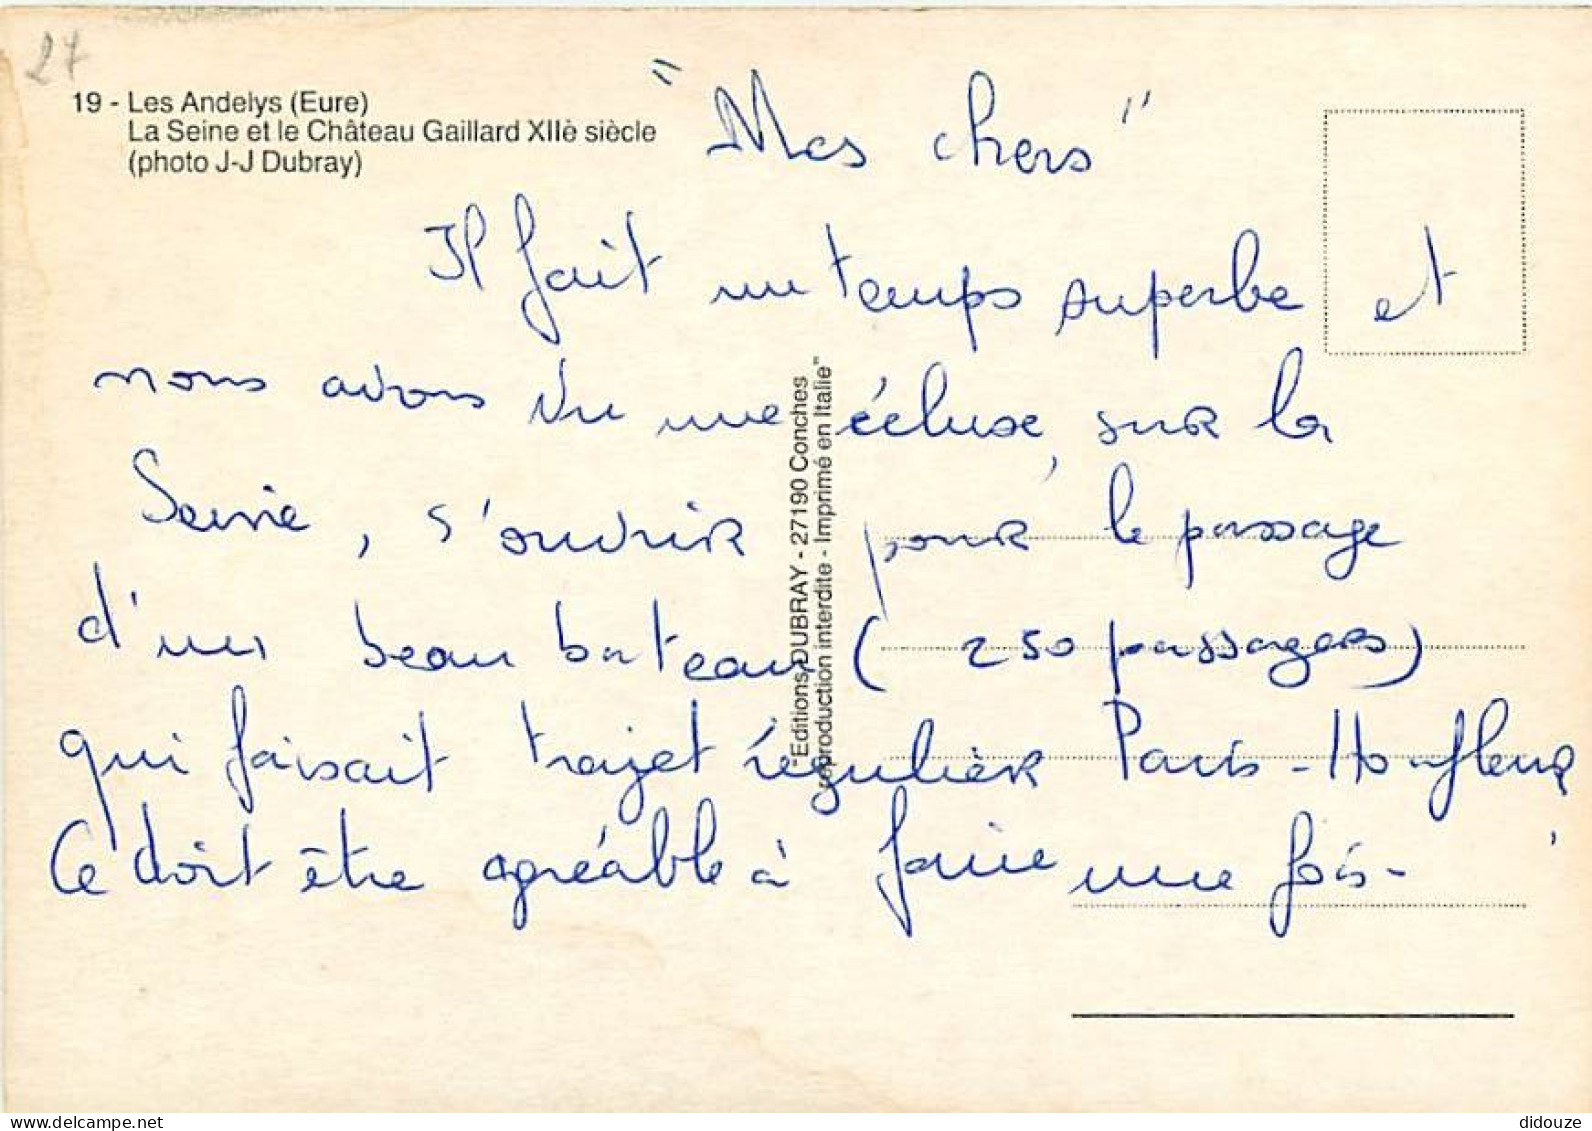 27
19 - Les Andelys (Eure)
La Seine et le Château Gaillard XIIè siècle
(photo J-J Dubray)
"Mes chers"
Il fait un temps superbe et
nous avons vu une écluse, sur la
Seine, s'ouvrir pour le passage
d'un beau bateau (250 passagers)
qui faisait trajet régulier Paris-Honfleur
Ce doit être agréable à faire une fois-
"Editions DUBRAY - 27190 Conches
reproduction interdite - Imprimé en Italie"
www.delcampe.net
didouze